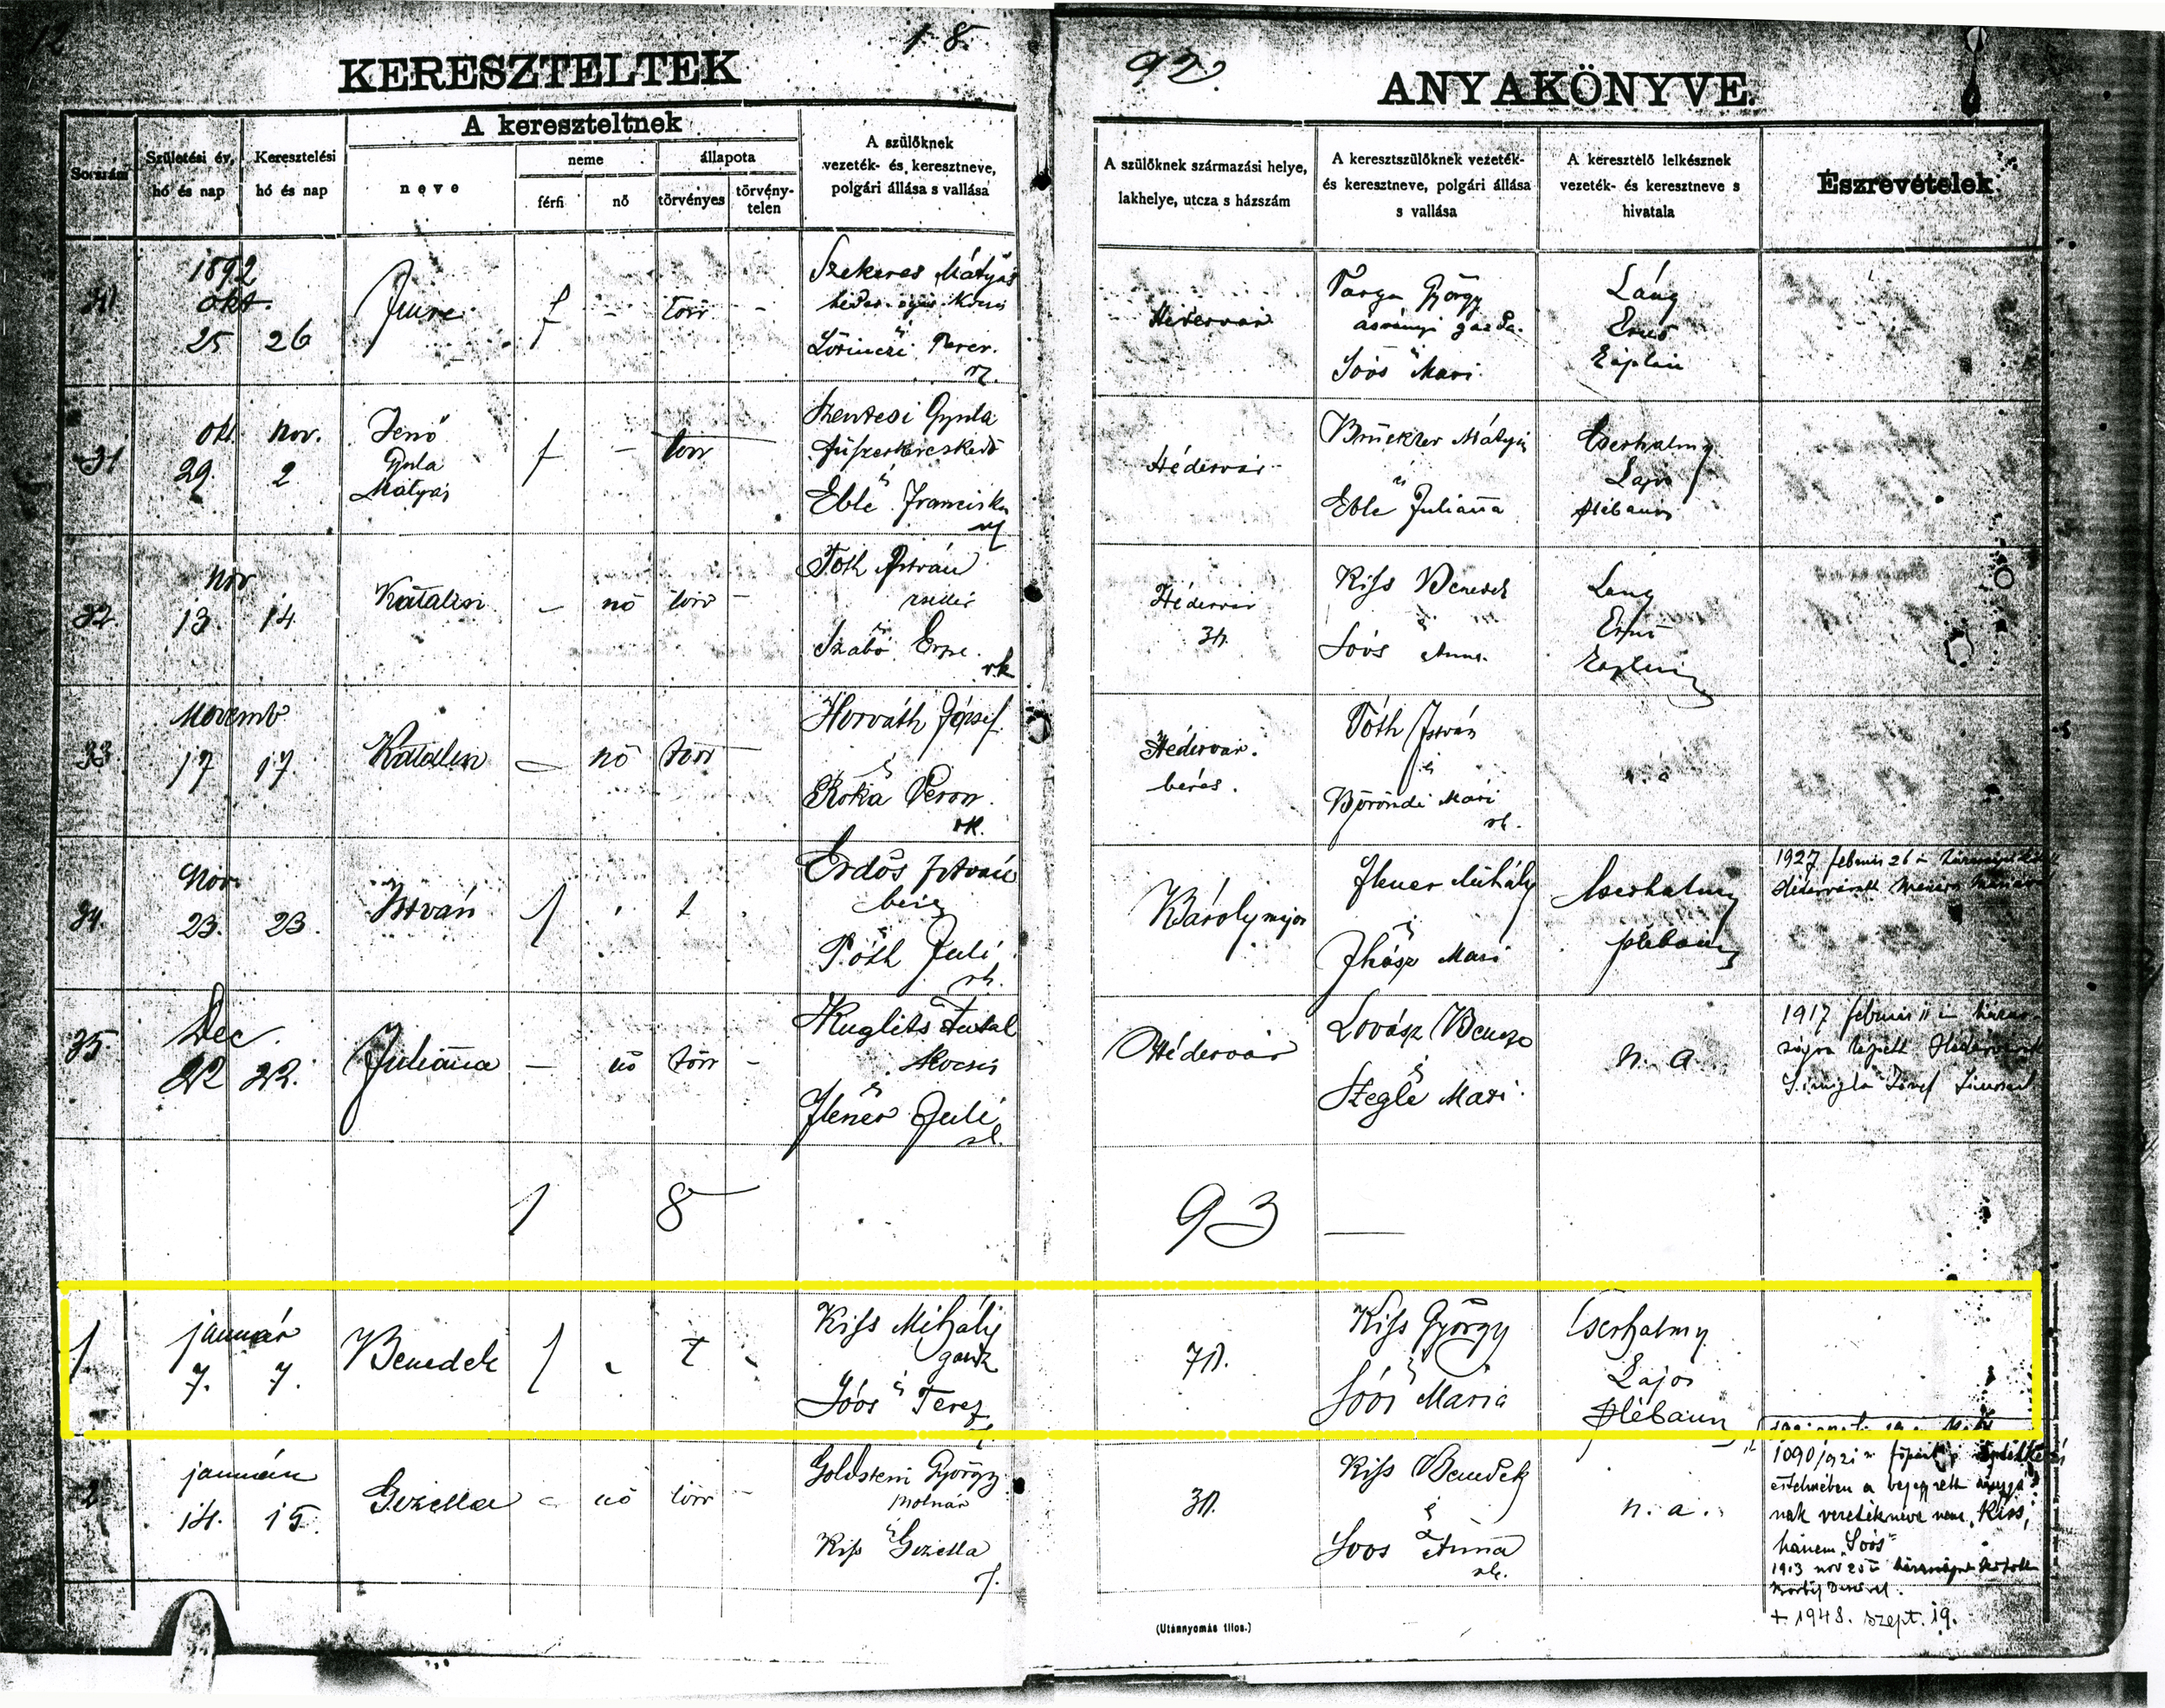 18
92
KERESZTELTEK
ANYAKÖNYVE.
Sorszám
Születési év, hó és nap
Keresztelési hó és nap
A kereszteltnek
neve
neme
férfi
nő
állapota
törvényes
törvény-telen
A szülőknek vezeték- és keresztneve, polgári állása s vallása
A szülőknek származási helye, lakhelye, utcza s házszám
A keresztszülőknek vezeték- és keresztneve, polgári állása s vallása
A keresztelő lelkésznek vezeték- és keresztneve s hivatala
Észrevételek
1892
okt.
25 26
Imre
f - törv -
Szekeres Mátyás
Lőrinczi Terez.
Hédervár
Varga György
ásványi gazda.
Soós Mari
Láng
Ernő
31
okt. nov.
29. 2
Jenő
Gyula
Mátyás
f - törv
Szentesi Gyula
fűszerkereskedő
és
Eble Franciska
Hédervár
Brückler Mátyás
és
Eble Julianna
Cserhalmy
Lajos
plébános
32
Nov
13. 14.
Katalin
- nő törv -
Tóth István
zsellér
és
Szabó Erzse.
rk
Hédervár
31.
Kiss Benedek
és
Soós Anna.
Láng
Ernő
33
Novemb
17 17.
Katalin
- nő törv -
Horváth József
és
Róka Veron.
rk.
Hédervár.
béres.
Tóth István
és
Böröndi Mari
rk.
n. a
34.
Nov
23. 23.
István
f t
Erdős István
béres
és
Tóth Juli
rk.
Károlymajor
Ilener Mihály
és
Ihász Mari
Cserhalmy
plébános
1927 február 26
35.
Dec.
22 22.
Julianna
- nő törv -
Kuglits Antal
kocsis
és
Ilener Juli
rk.
Hédervár
Lovász Bencze
és
Szegle Mari
n. a.
1917 február 11
1893
1
január
7. 7.
Benedek
f t
Kiss Mihály
gazda
és
Soós Teréz
71.
Kiss György
és
Soós Mária
Cserhalmy
Lajos
plébános
2
január
14. 15.
Gizella
- nő törv -
Goldstein György
molnár
és
Kiss Gizella
31.
Kiss Benedek
és
Soós Anna
rk.
n. a.
értelmében a bejegyzett anyjá-
nak vezetékneve nem "Kiss",
hanem "Soós"
+ 1948. szept. 19.
(Utánnyomás tilos.)